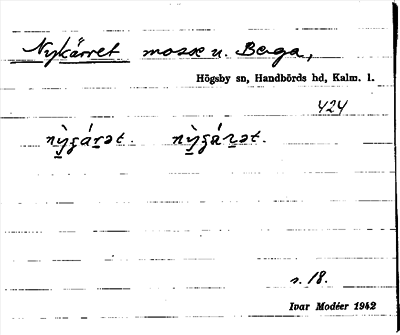 Nykärret mosse u. Berga,
Högsby sn, Handbörds hd, Kalm. l.
424
s. 18.
Ivar Modéer 1942